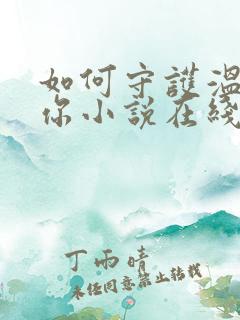 如何守護溫
你小說在綫
丁雨晴
未经同意禁止转载